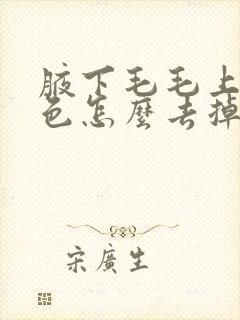 腋下毛毛上
色怎麼去掉
宋廣生